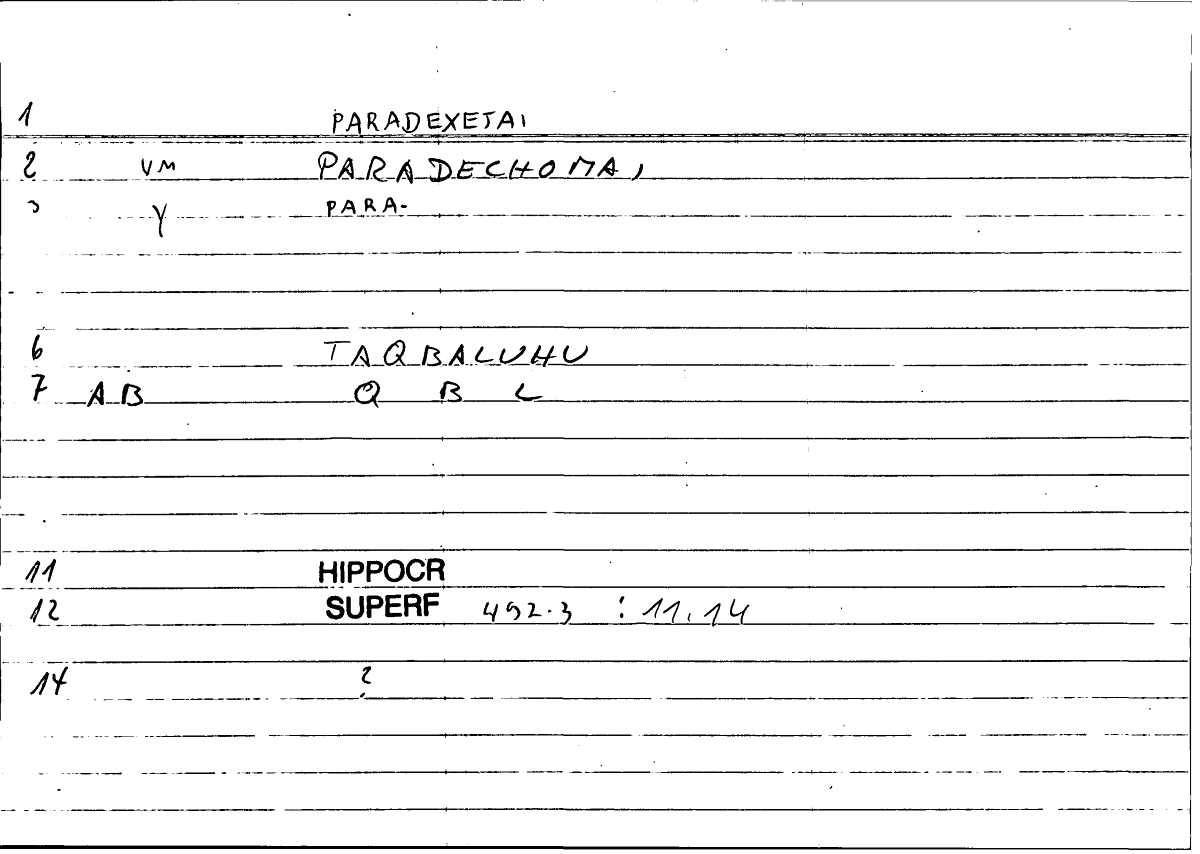 1 PARADEXETAI
2 VM PARADECHOMAI
3 Y PARA-
6 TAQBALUHU
7 AB Q B L
11 HIPPOCR
12 SUPERF 492.3 : 11.14
14 ?